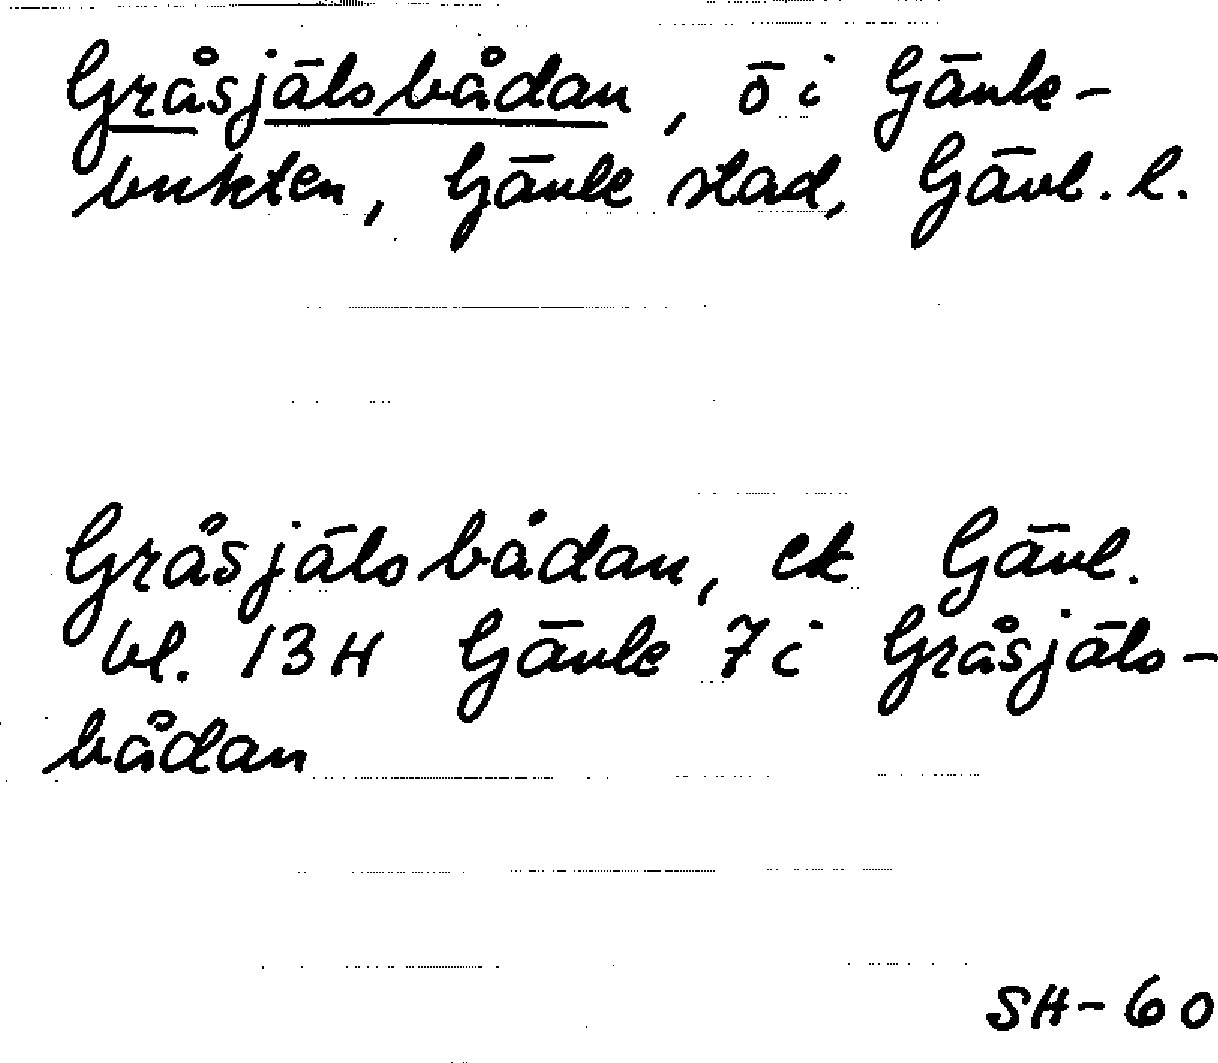 Gråsjälsbådan, ö i Gävle-
bukten, Gävle stad, Gävl. l.
Gråsjälsbådan, ek Gävl.
bl. 13H Gävle 7 i Gråsjäls-
bådan
SH-60